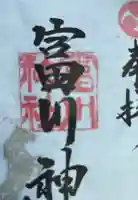 奉拝
富川神